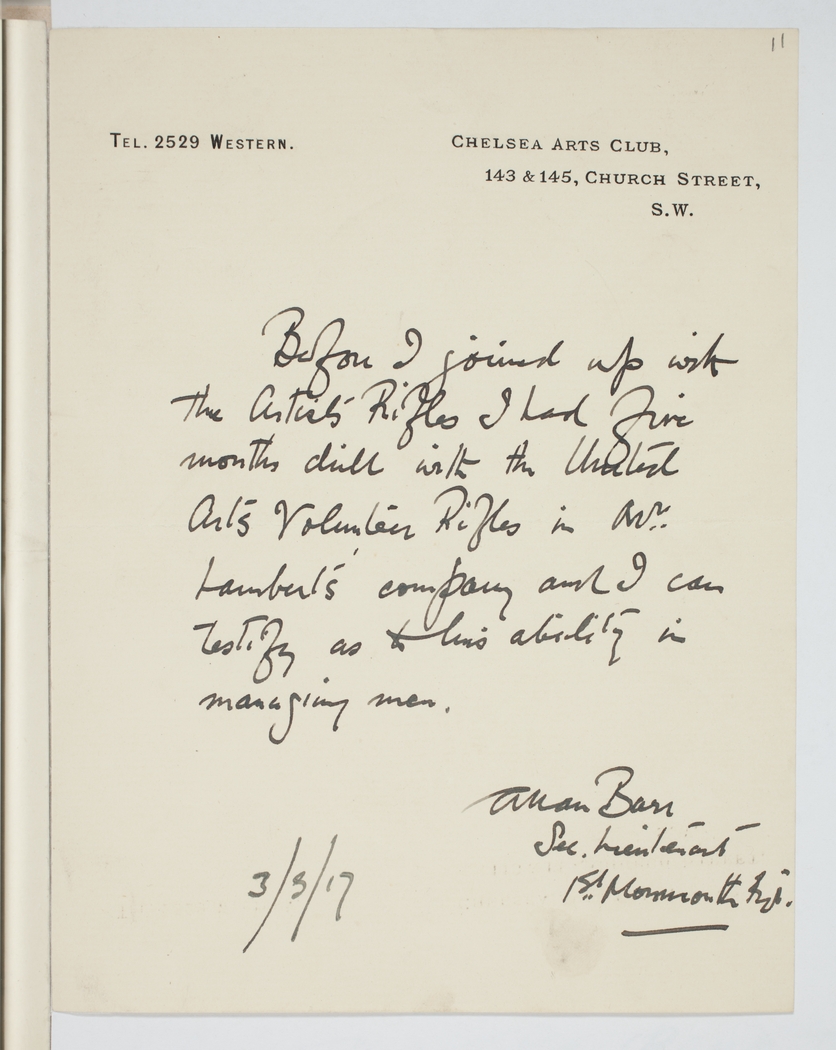 11
TEL. 2529 WESTERN.
CHELSEA ARTS CLUB,
143 & 145, CHURCH STREET,
S.W.
Before I joined up with
the Artists' Rifles I had five
months drill with the United
Arts Volunteer Rifles in Mr.
Lambert's company and I can
testify as to his ability in
managing men.
Allan Barr
Sec. Lieutenant
1st Monmouth Rgt.
3/3/17